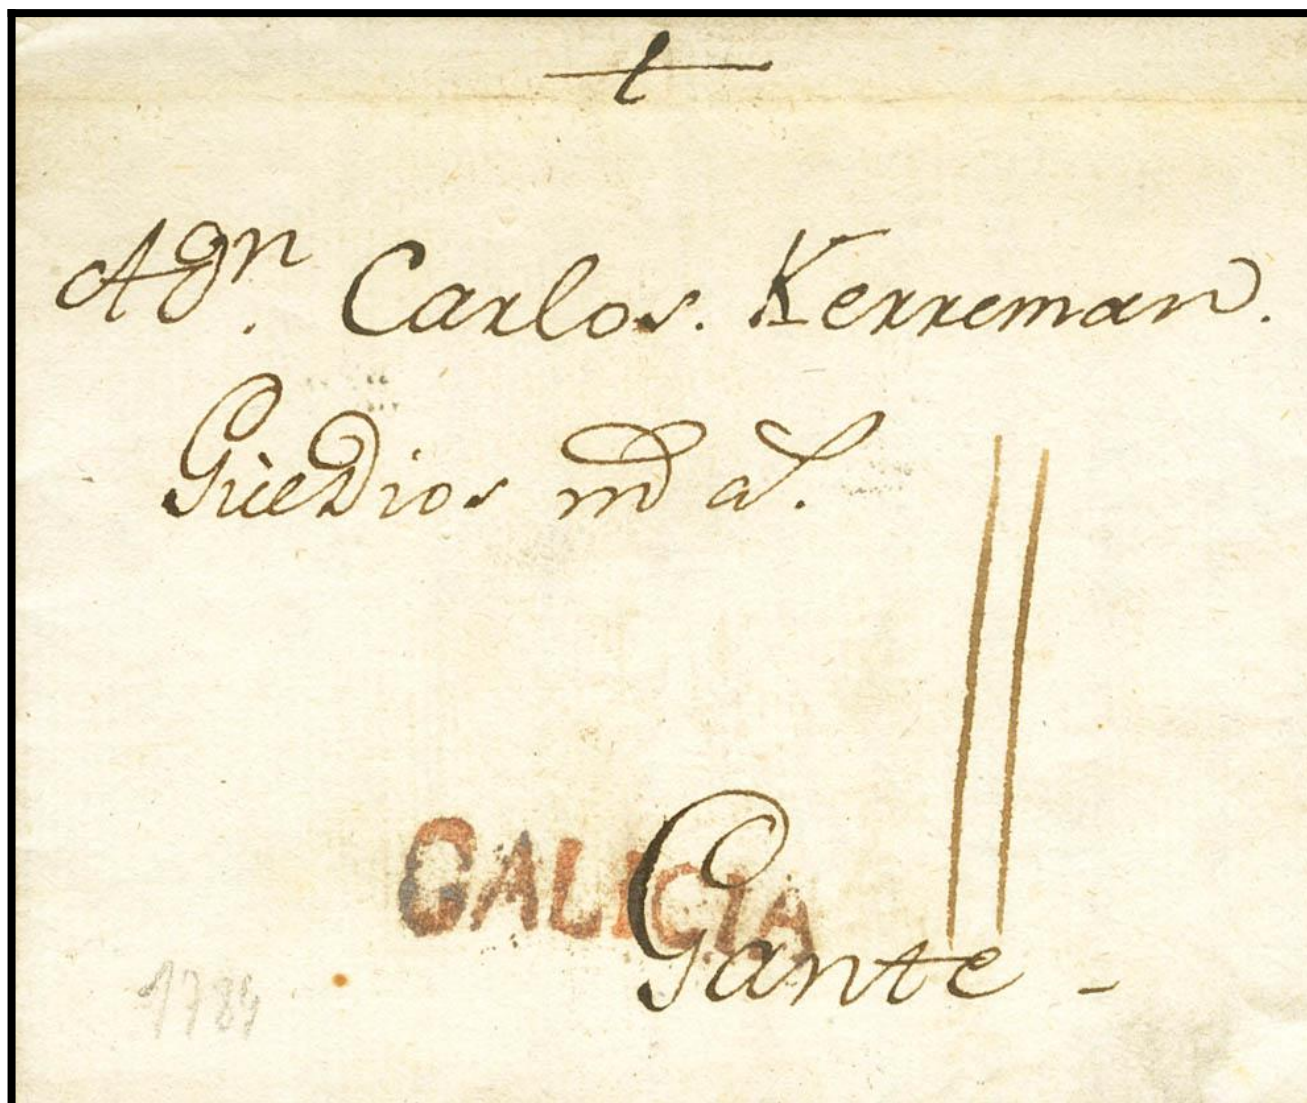 †
A Dⁿ. Carlos Kerreman.
Güe Dios mᵈ aˢ.
GALICIA
Gante -
1784